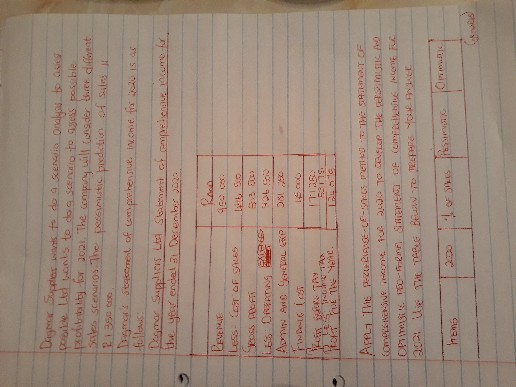 Daymar Suppliers wants to do a scenario analysis to assess
possible Ltd wants to do a scenario to assess possible
profitability for 2021. The company will consider three different
sales scenarios. The pessimistic prediction of sales is
R1 350 000
Daymar's statement of comprehensive income for 2020 is as
follows
Daymar Suppliers Ltd statement of comprehensive income for
the year ended 31 December 2020
Rand
REVENUE 950 000
LESS COST OF SALES
GROSS PROFIT
LESS: OPERATING EXPENSES
ADMIN AND GENERAL EXP
FINANCE COST
PROFIT BEFORE TAX 171 250
INCOME TAX
PROFIT FOR THE YEAR
APPLY THE PERCENTAGE-OF-SALES METHOD TO THE STATEMENT OF
COMPREHENSIVE INCOME FOR 2020 TO DEVELOP THE PESSIMISTIC AND
OPTIMISTIC PRO-FORMA STATEMENT OF COMPREHENSIVE INCOME FOR
2021. USE THE TABLE BELOW TO PREPARE YOUR ANSWER
ITEMS 2020 % OF SALES PESSIMISTIC OPTIMISTIC